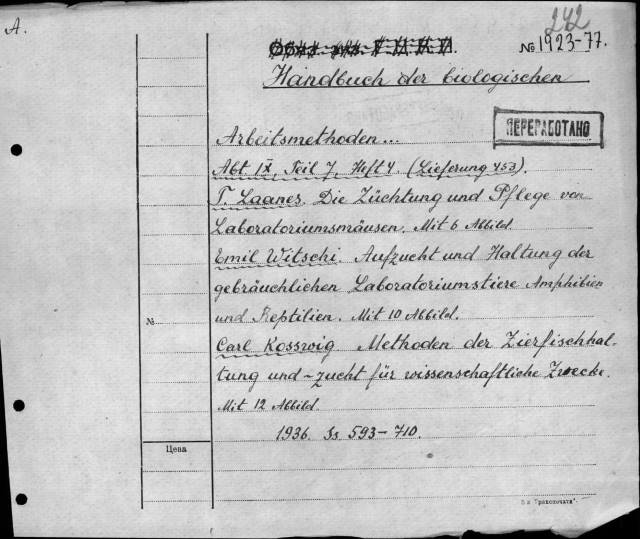 A.
242
№ 1923-77.
Handbuch der biologischen
ПЕРЕРАБОТАНО
Arbeitsmethoden...
Abt IX, Teil 7, Heft 4. (Lieferung 453).
T. Laanes. Die Züchtung und Pflege von
Laboratoriumsmäusen. Mit 6 Abbild.
Emil Witschi. Aufzucht und Haltung der
gebräuchlichen Laboratoriumstiere Amphibien
№ und Reptilien. Mit 10 Abbild.
Carl Kosswig Methoden der Zierfischhal-
tung und -zucht für wissenschaftliche Zwecke.
Mit 12 Abbild.
1936. Ss. 593-710.
Цена